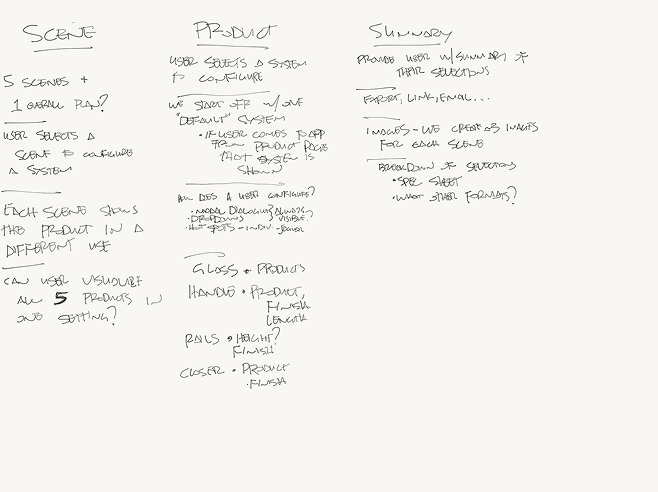 SCENE
5 SCENES +
1 OVERALL PLAN?
USER SELECTS A
SCENE TO CONFIGURE
A SYSTEM
EACH SCENE SHOWS
THE PRODUCT IN A
DIFFERENT USE
CAN USER VISUALIZE
ALL 5 PRODUCTS IN
ONE SETTING?
PRODUCT
USER SELECTS A SYSTEM
TO CONFIGURE
WE START OFF W/ ONE
"DEFAULT" SYSTEM
• IF USER COMES TO APP
FROM PRODUCT PAGE
THAT SYSTEM IS
SHOWN
DOES A USER CONFIGURE?
• MODAL DIALOGUE } ALWAYS
• DROPDOWNS } VISIBLE?
• HOT SPOTS - INDIV.
GLASS • PRODUCTS
HANDLE • PRODUCT,
FINISH
LENGTH
RAILS • HEIGHT?
FINISH
CLOSER • PRODUCT
• FINISH
SUMMARY
PROVIDE USER W/ SUMMARY OF
THEIR SELECTIONS
EXPORT, LINK, EMAIL...
IMAGES - WE CREATE 3 IMAGES
FOR EACH SCENE
BREAKDOWN OF SELECTIONS
• SPEC SHEET
• WHAT OTHER FORMATS?